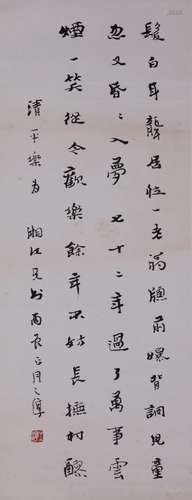 髮白耳聾居然一老翁牕前曝背調兒童
忽又昏〻入夢七十二年過了萬事雲
煙一笑從今歡樂餘年不妨長撫村醪
清平樂為湘江兄書丙辰正月之淳